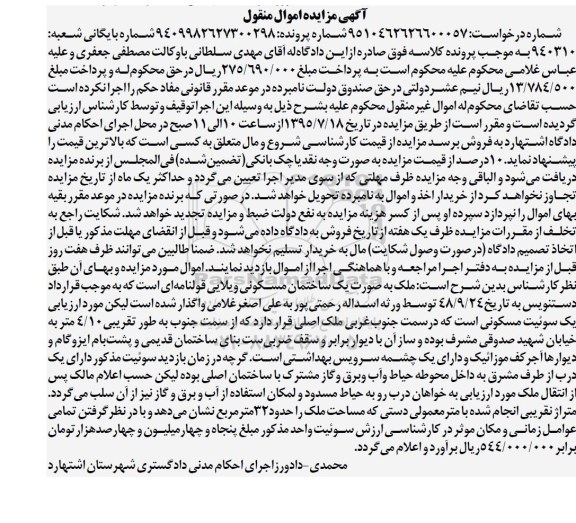 آگهی مزایده اموال منقول
شماره درخواست: ۹۵۱۰۴۶۲۶۲۶۶۰۰۰۵۷ شماره پرونده: ۹۴۰۹۹۸۲۶۲۷۳۰۰۲۹۸ شماره بایگانی شعبه:
۹۴۰۳۱۰ به موجب پرونده کلاسه فوق صادره از این دادگاه له آقای مهدی سلطانی با وکالت مصطفی جعفری و علیه
عباس غلامی محکوم علیه محکوم است به پرداخت مبلغ ۲۷۵/۶۹۰/۰۰۰ ریال در حق محکوم له و پرداخت مبلغ
۱۳/۷۸۴/۵۰۰ ریال نیم عشر دولتی در حق صندوق دولت نامبرده در موعد مقرر قانونی مفاد حکم را اجرا نکرده است
حسب تقاضای محکوم له اموال غیر منقول محکوم علیه بشرح ذیل به وسیله این اجرا توقیف و توسط کارشناس ارزیابی
گردیده است و مقرر است از طریق مزایده در تاریخ ۱۳۹۵/۷/۱۸ از ساعت ۱۰ الی ۱۱ صبح در محل اجرای احکام مدنی
دادگاه اشتهارد به فروش برسد مزایده از قیمت کارشناسی شروع و مال متعلق به کسی است که بالاترین قیمت را
پیشنهاد نماید. ۱۰ درصد از قیمت مزایده به صورت وجه نقد یا چک بانکی (تضمین شده) فی المجلس از برنده مزایده
دریافت می‌شود و الباقی وجه مزایده ظرف مهلتی که از سوی مدیر اجرا تعیین می‌گردد و حداکثر یک ماه از تاریخ مزایده
تجاوز نخواهد کرد از خریدار اخذ و اموال به نامبرده تحویل خواهد شد. در صورتی که برنده مزایده در موعد مقرر بقیه
بهای اموال را نپردازد سپرده او پس از کسر هزینه مزایده به نفع دولت ضبط و مزایده تجدید خواهد شد. شکایت راجع به
تخلف از مقررات مزایده ظرف یک هفته از تاریخ فروش به دادگاه داده می‌شود و قبل از انقضای مهلت مذکور یا قبل از
اتخاذ تصمیم دادگاه (در صورت وصول شکایت) مال به خریدار تسلیم نخواهد شد. ضمنا طالبین می‌توانند ظرف هفت روز
قبل از مزایده به دفتر اجرا مراجعه و با هماهنگی اجرا از اموال بازدید نمایند. اموال مورد مزایده و بهای آن طبق
نظر کارشناس بدین شرح است: ملک به صورت یک ساختمان مسکونی ویلایی قولنامه‌ای است که به موجب قرارداد
دستنویس به تاریخ ۴۸/۹/۲۴ توسط ورثه اسداله رحمتی‌پور به علی اصغر غلامی واگذار شده است لیکن مورد ارزیابی
یک سوئیت مسکونی است که در سمت جنوب غربی ملک اصلی قرار دارد که از سمت جنوب به طور تقریبی ۴/۱۰ متر به
خیابان شهید صدوقی مشرف بوده و ساز آن با دیوار برابر و سقف ضربی ست بنای ساختمان قدیمی و پشت‌بام ایزوگام و
دیوارها آجر کف موزائیک و دارای یک چشمه سرویس بهداشتی است. گرچه در زمان بازدید سوئیت مذکور دارای یک
درب از طرف مشرق به داخل محوطه حیاط وآب وبرق وگاز مشترک با ساختمان اصلی بوده لیکن حسب اعلام مالک پس
از انتقال ملک مورد ارزیابی به خواهان درب رو به حیاط مسدود و امکان استفاده از آب و برق و گاز نیز از آن سلب می‌گردد.
متراژ تقریبی انجام شده با متر معمولی دستی که مساحت ملک را حدود ۳۲ متر مربع نشان می‌دهد و با در نظر گرفتن تمامی
عوامل زمانی و مکان موثر در کارشناسی ارزش سوئیت واحد مذکور مبلغ پنجاه و چهار میلیون و چهارصد هزار تومان
برابر ۵۴۴/۰۰۰/۰۰۰ ریال برآورد و اعلام می‌گردد.
محمدی -دادورز اجرای احکام مدنی دادگستری شهرستان اشتهارد